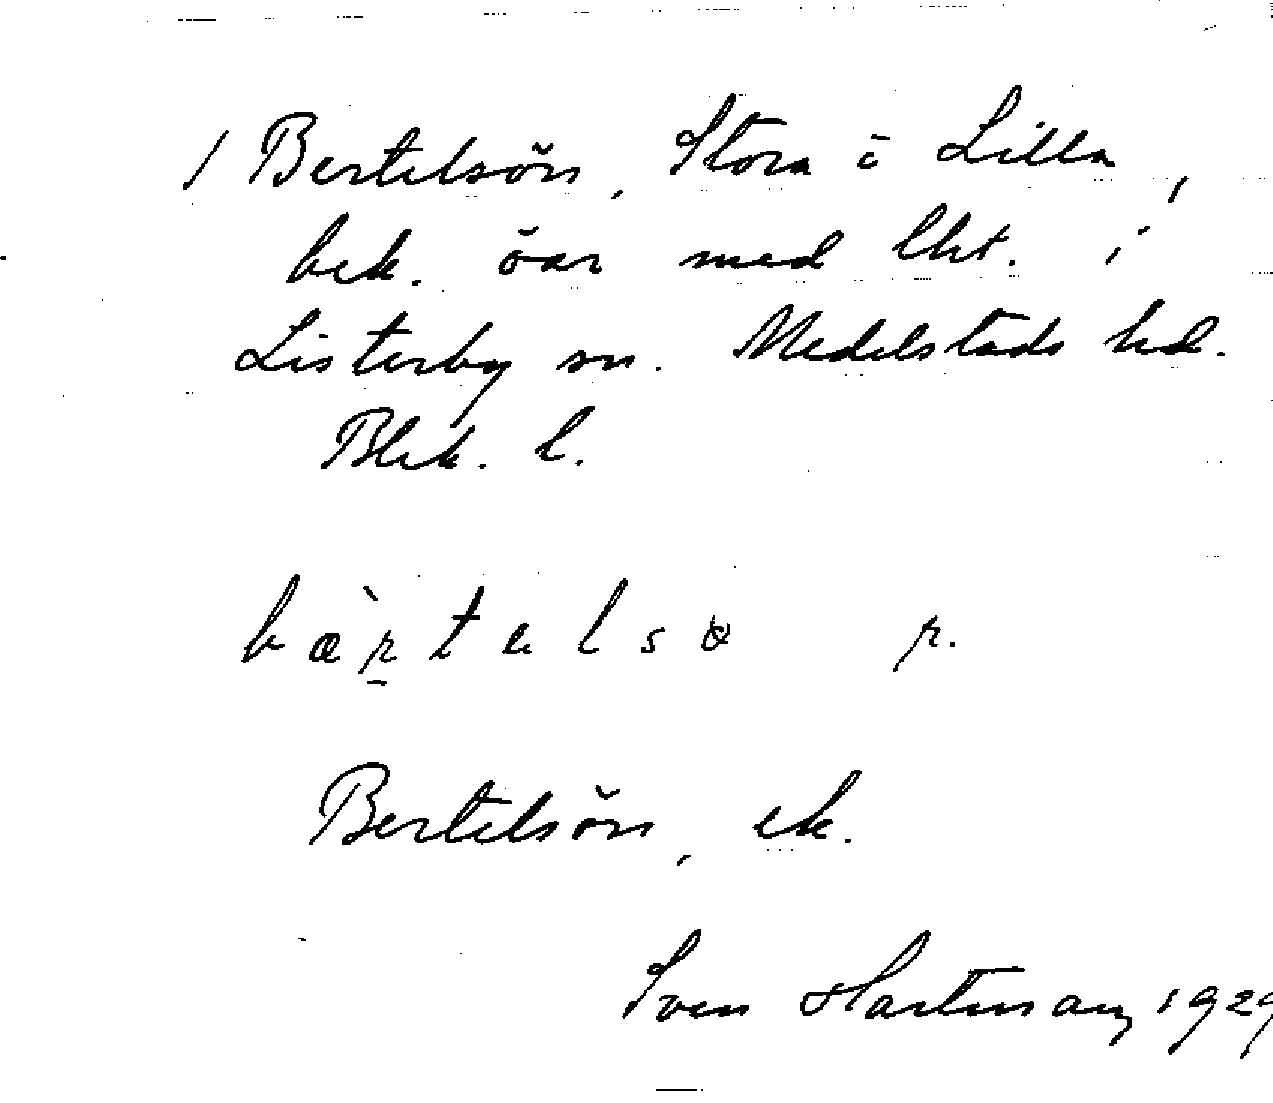 / Bertelsön, Stora o Lilla,
bek. öar med lht. i
Listerby sn. Medelstads hd.
Blek. l.
bæ̀rtelsø r.
Bertelsön, ek.
Sven Hartman, 1929